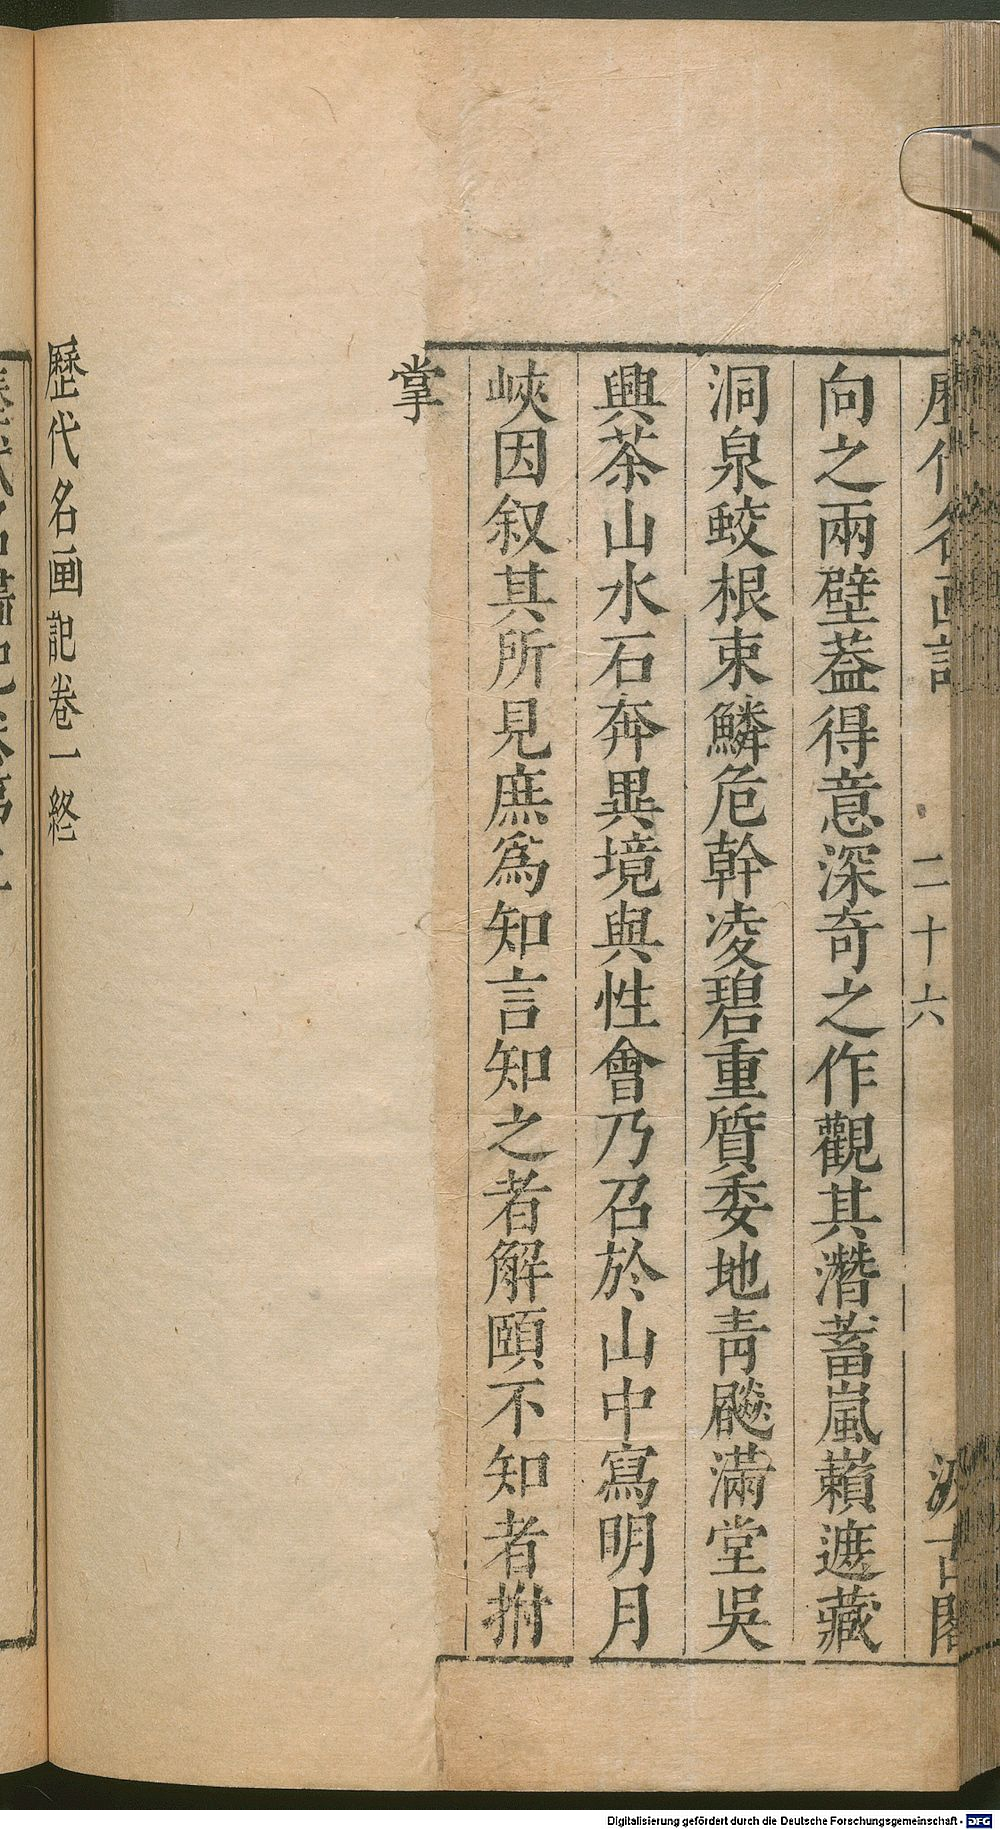 歷代名画記 二十六 汲古閣
向之兩壁葢得意深奇之作觀其潛蓄嵐籟遮藏
洞泉蛟根束鱗危幹凌碧重質委地靑飈滿堂吳
興茶山水石奔異境與性會乃召於山中寫明月
峽因叙其所見庶爲知言知之者解頤不知者拊
掌
歷代名画記卷一終
Digitalisierung gefördert durch die Deutsche Forschungsgemeinschaft - DFG